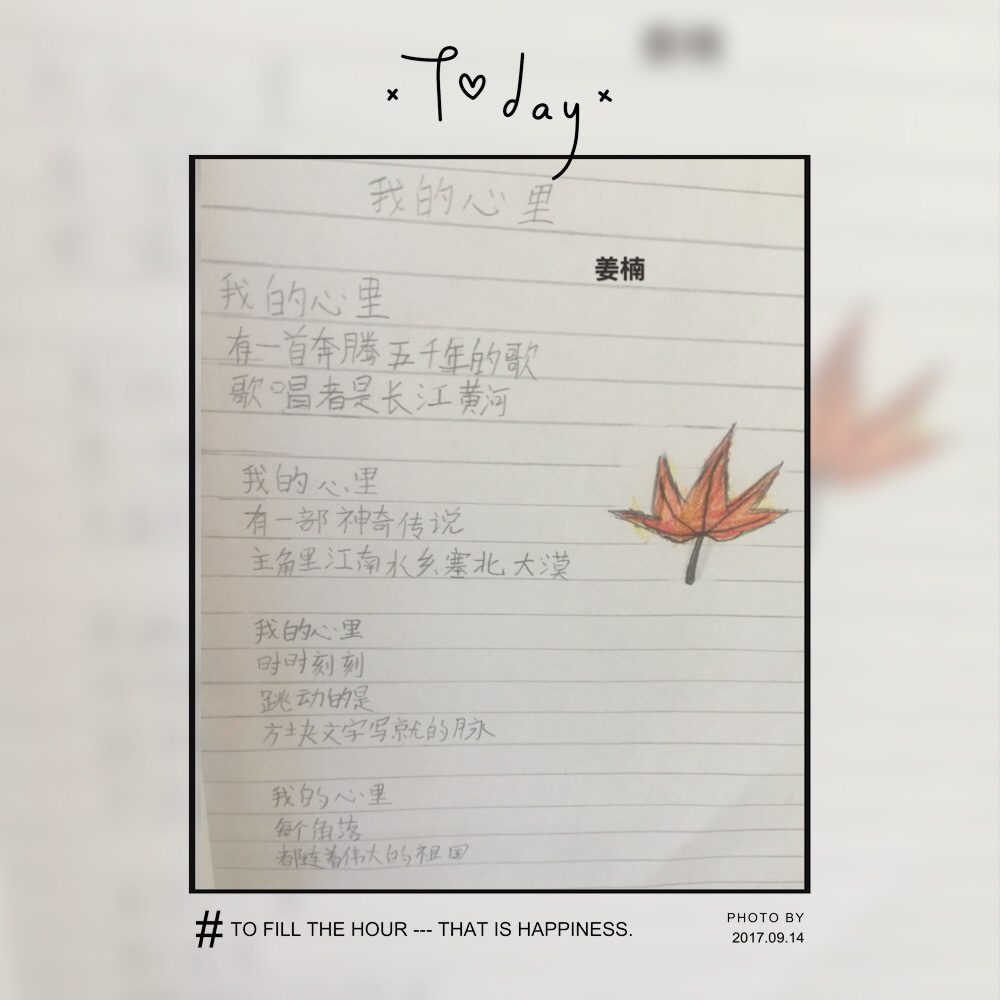 Today
我的心里
姜楠
我的心里
有一首奔腾五千年的歌
歌唱者是长江黄河
我的心里
有一部神奇传说
主角里江南水乡塞北大漠
我的心里
时时刻刻
跳动的是
方块文字写就的脉
我的心里
每个角落
都连着伟大的祖国
# TO FILL THE HOUR --- THAT IS HAPPINESS.
PHOTO BY
2017.09.14